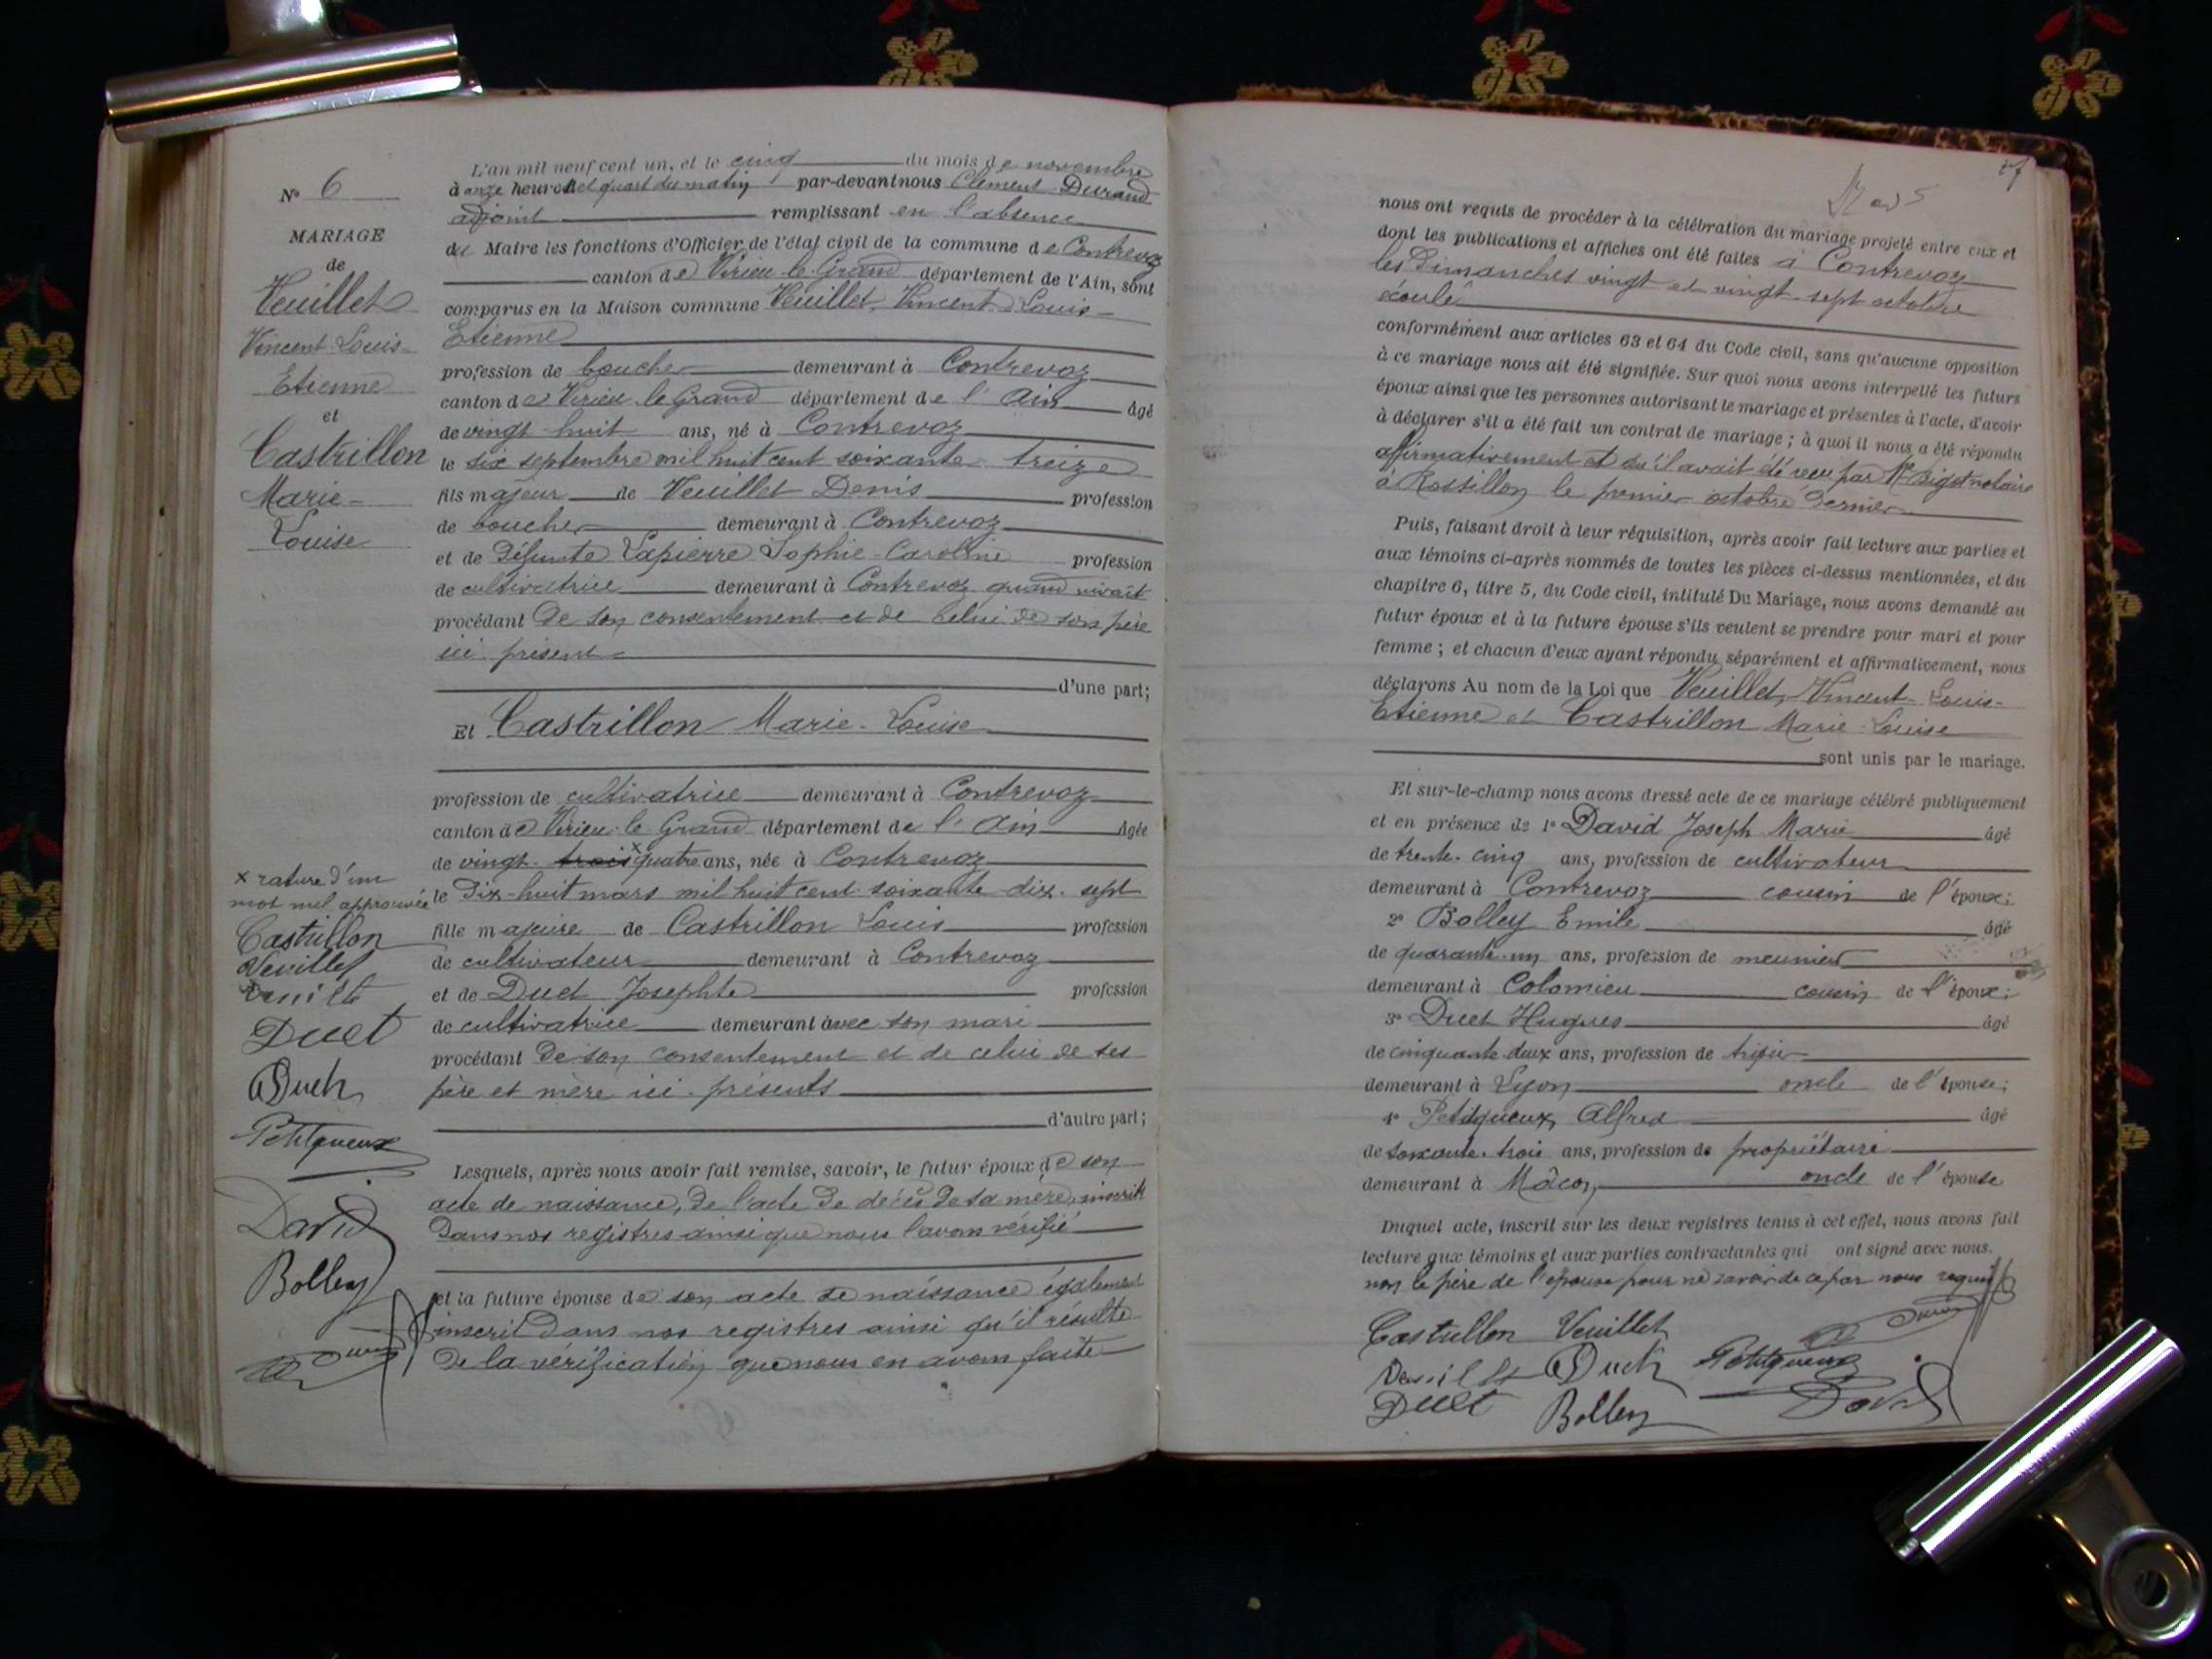 N° 6
MARIAGE
de
Veuillet
Vincent Louis-
Etienne
et
Castrillon
Marie-
Louise
× rature d'un
mot nul approuvée
Castrillon
Veuillet
Duet
Duch
Petitqueux
David
Bolley
L'an mil neuf cent un, et le cinq du mois de novembre
à onze heures et quart du matin par-devant nous Clément Durand
adjoint remplissant en l'absence
du Maire les fonctions d'Officier de l'état civil de la commune de Contrevoz
canton de Virieu-le-Grand département de l'Ain, sont
comparus en la Maison commune Veuillet, Vincent Louis-
Etienne
profession de boucher demeurant à Contrevoz
canton de Virieu-le-Grand département de l'Ain âgé
de vingt-huit ans, né à Contrevoz
le six septembre mil huit cent soixante-treize
fils majeur de Veuillet Denis profession
de boucher demeurant à Contrevoz
et de défunte Lapierre Sophie-Caroline profession
de cultivatrice demeurant à Contrevoz quand vivait
procédant de son consentement et de celui de son père
ici présent
d'une part;
Et Castrillon Marie-Louise
profession de cultivatrice demeurant à Contrevoz
canton de Virieu-le-Grand département de l'Ain Agée
de vingt-trois × quatre ans, née à Contrevoz
le dix-huit mars mil huit cent soixante-dix-sept
fille majeure de Castrillon Louis profession
de cultivateur demeurant à Contrevoz
et de Duet Josephte profession
de cultivatrice demeurant avec son mari
procédant de son consentement et de celui de ses
père et mère ici présents
d'autre part;
Lesquels, après nous avoir fait remise, savoir, le futur époux de son
acte de naissance, de l'acte de décès de sa mère, inscrit
dans nos registres ainsi que nous l'avons vérifié
et la future épouse de son acte de naissance également
inscrit dans nos registres ainsi qu'il résulte
de la vérification que nous en avons faite
27
nous ont requis de procéder à la célébration du mariage projeté entre eux et
dont les publications et affiches ont été faites à Contrevoz
les dimanches vingt et vingt-sept octobre
écoulé
conformément aux articles 63 et 64 du Code civil, sans qu'aucune opposition
à ce mariage nous ait été signifiée. Sur quoi nous avons interpellé les futurs
époux ainsi que les personnes autorisant le mariage et présentes à l'acte, d'avoir
à déclarer s'il a été fait un contrat de mariage; à quoi il nous a été répondu
affirmativement et qu'il avait été reçu par Me Bigot notaire
à Rossillon le premier octobre dernier
Puis, faisant droit à leur réquisition, après avoir fait lecture aux parties et
aux témoins ci-après nommés de toutes les pièces ci-dessus mentionnées, et du
chapitre 6, titre 5, du Code civil, intitulé Du Mariage, nous avons demandé au
futur époux et à la future épouse s'ils veulent se prendre pour mari et pour
femme; et chacun d'eux ayant répondu séparément et affirmativement, nous
déclarons Au nom de la Loi que Veuillet, Vincent-Louis-
Etienne et Castrillon Marie-Louise
sont unis par le mariage.
Et sur-le-champ nous avons dressé acte de ce mariage célébré publiquement
et en présence de 1° David Joseph Marie âgé
de trente-cinq ans, profession de cultivateur
demeurant à Contrevoz cousin de l'époux;
2° Bolley Emile âgé
de quarante-un ans, profession de meunier
demeurant à Colomieu cousin de l'époux;
3° Duet Hugues âgé
de cinquante-deux ans, profession de tripier
demeurant à Lyon oncle de l'épouse;
4° Petitqueux Alfred âgé
de soixante-trois ans, profession de propriétaire
demeurant à Mâcon oncle de l'épouse
Duquel acte, inscrit sur les deux registres tenus à cet effet, nous avons fait
lecture aux témoins et aux parties contractantes qui ont signé avec nous.
non le père de l'épouse pour ne savoir de ce par nous requis
Castrillon Veuillet
Duch Petitqueux
Duet Bolley David